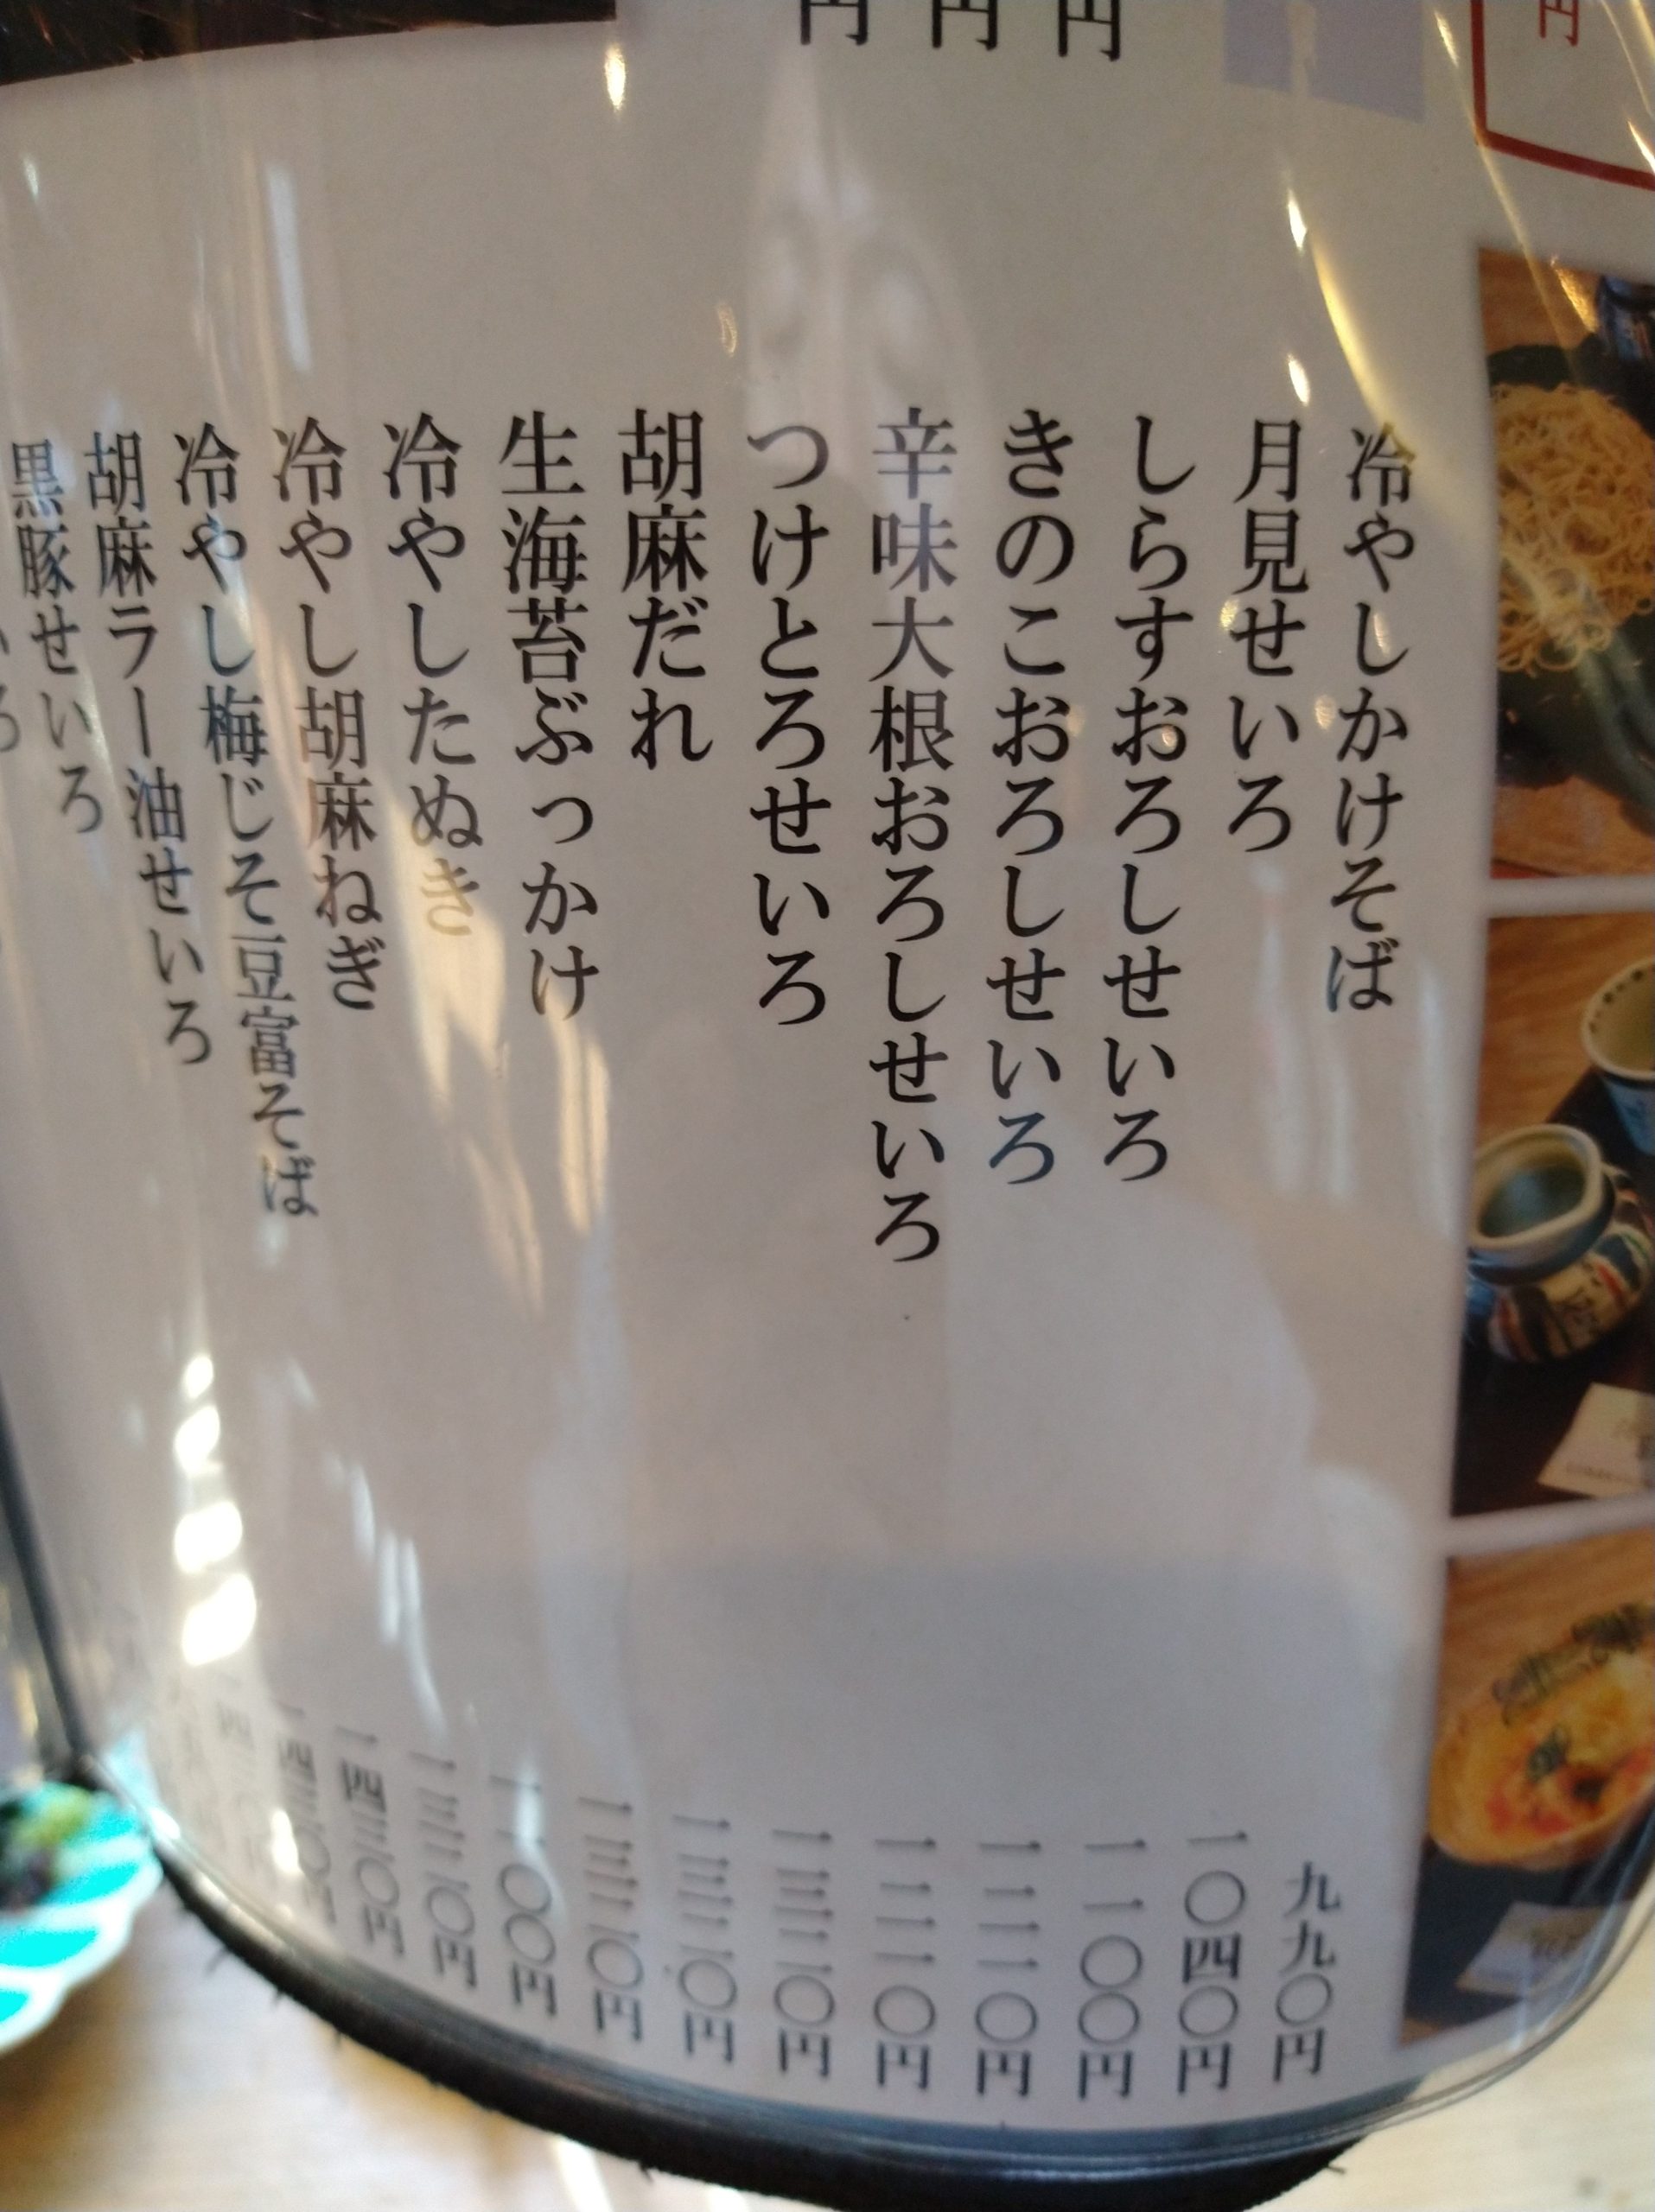 円
円
円
円
冷やしかけそば 九九〇円
月見せいろ 一〇四〇円
しらすおろしせいろ 一一〇〇円
きのこおろしせいろ 一二一〇円
辛味大根おろしせいろ 一二一〇円
つけとろせいろ 一三二〇円
胡麻だれ 一三二〇円
生海苔ぶっかけ 一三二〇円
冷やしたぬき 一一〇〇円
冷やし胡麻ねぎ 一三二〇円
冷やし梅じそ豆富そば 一四三〇円
胡麻ラー油せいろ
黒豚せいろ